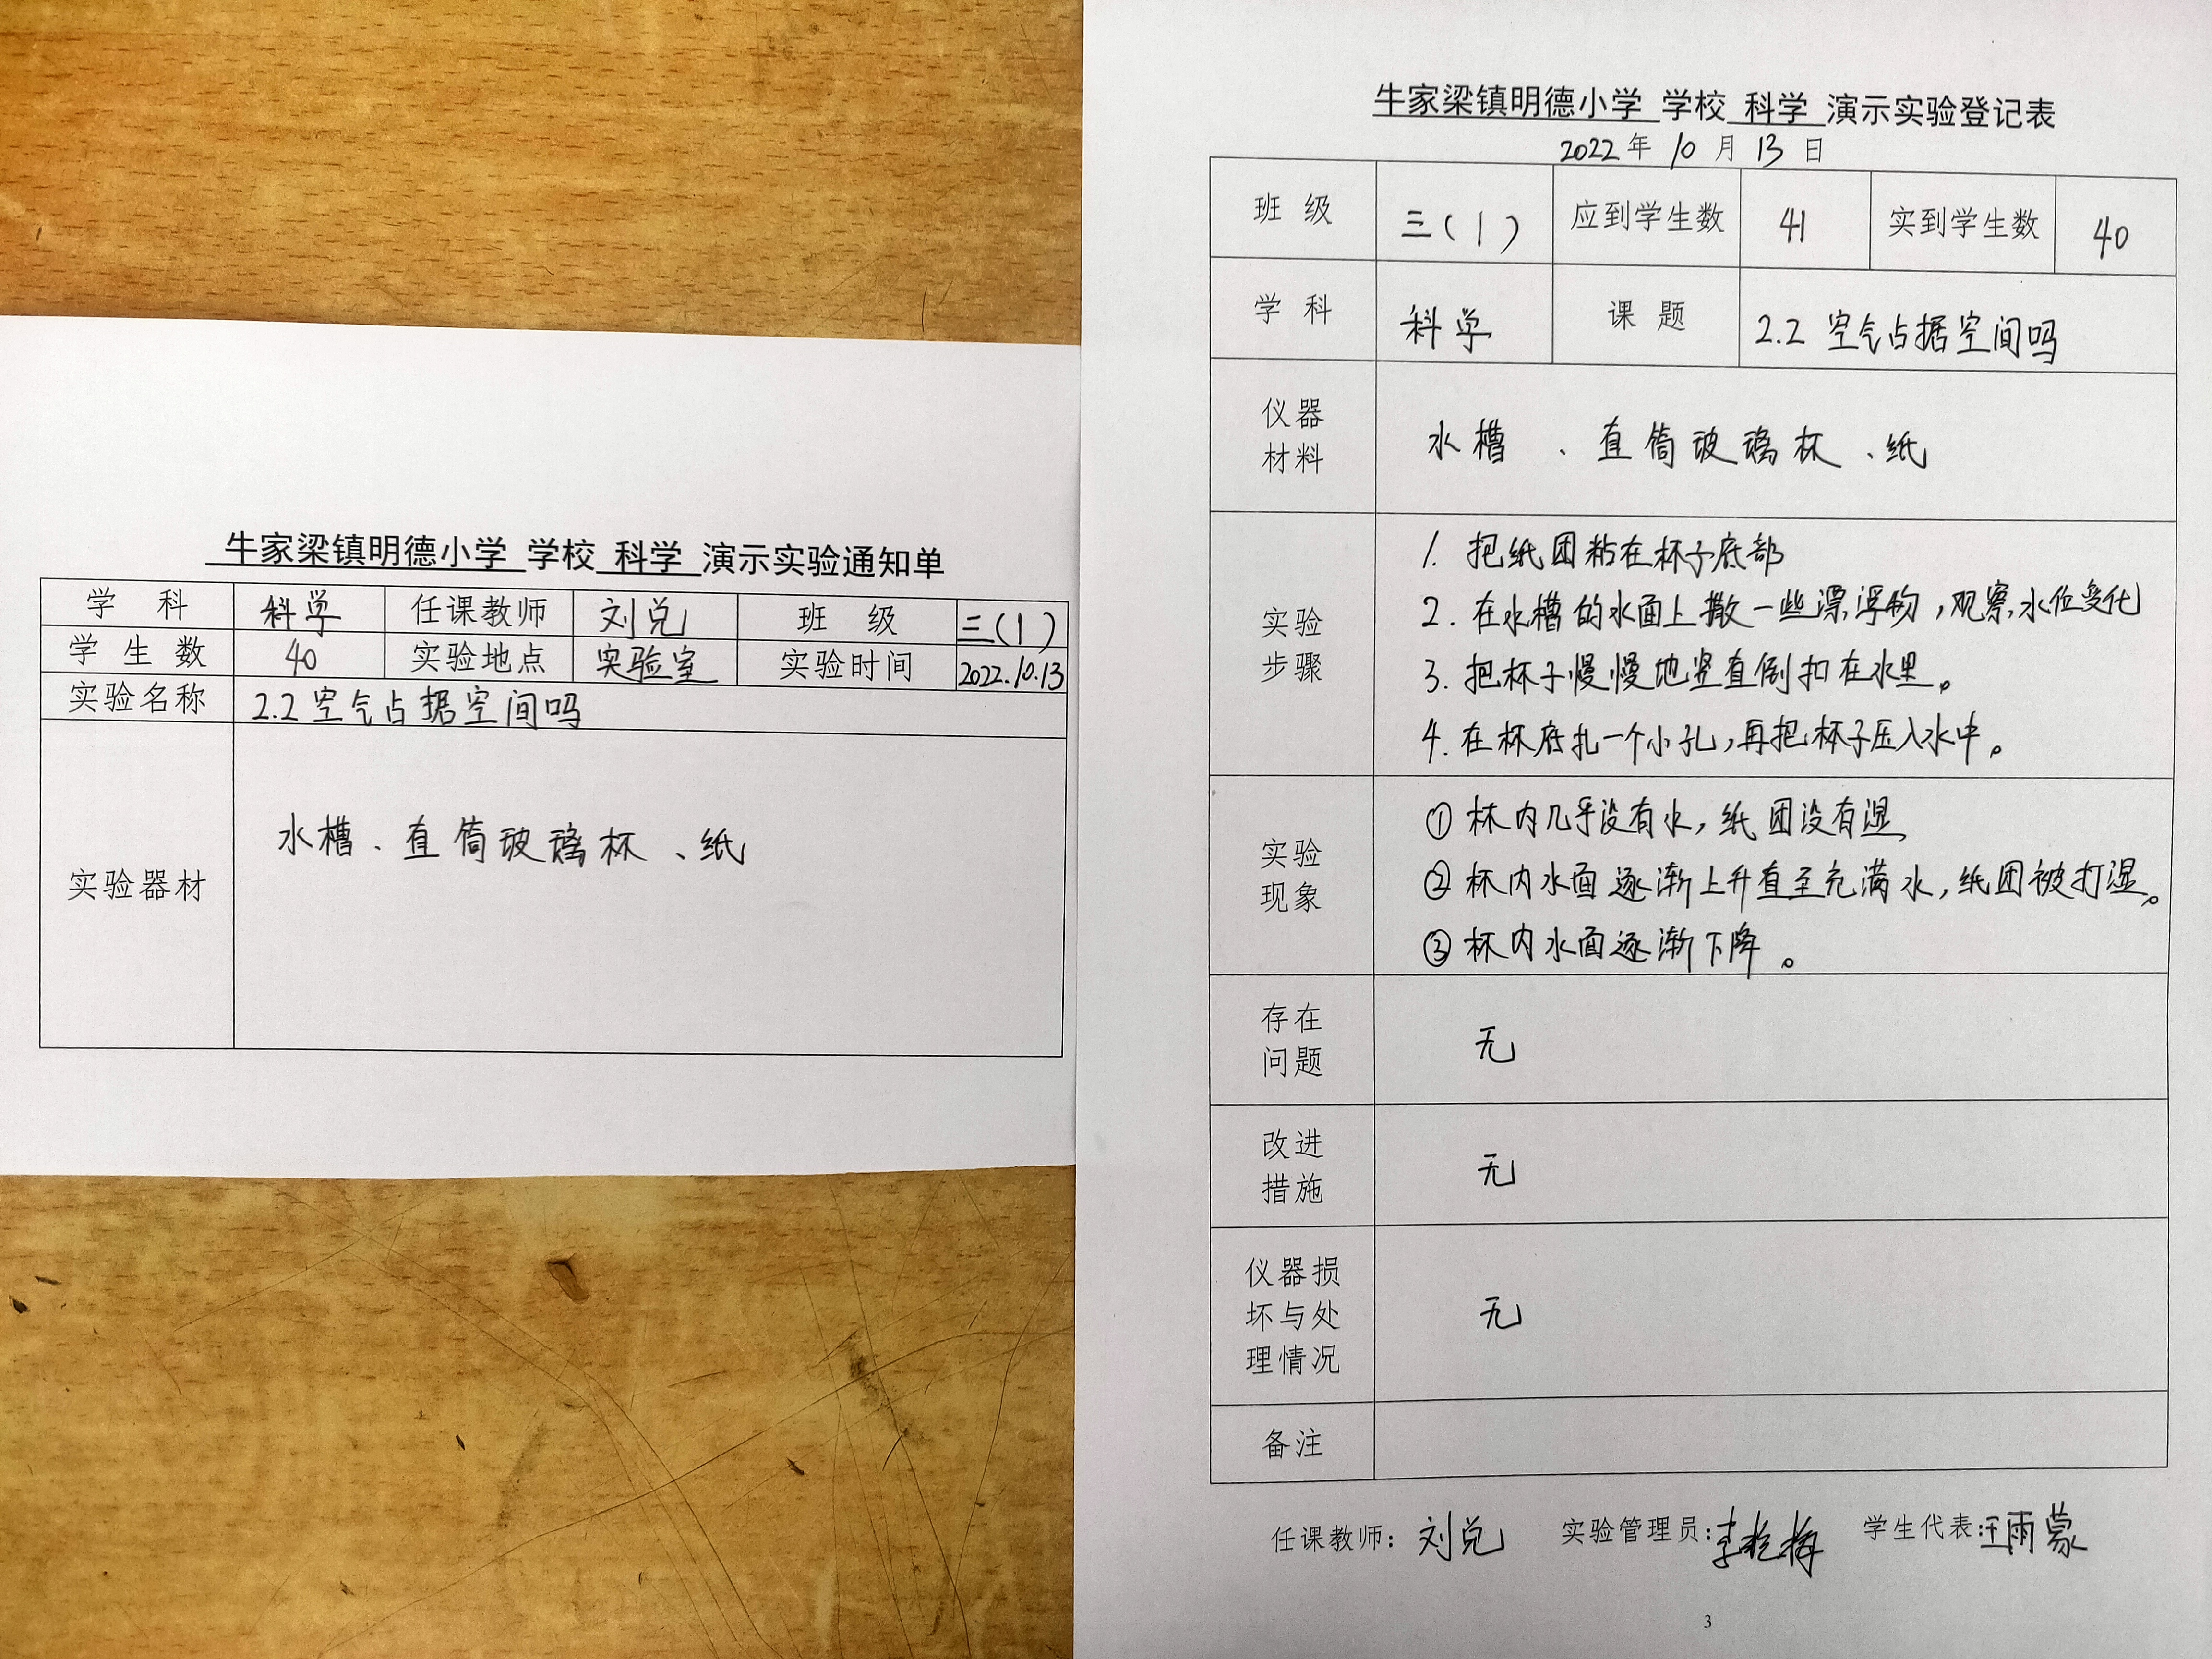 牛家梁镇明德小学 学校 科学 演示实验通知单
学 科 科学 任课教师 刘兑 班 级 三(1)
学 生 数 40 实验地点 实验室 实验时间 2022.10.13
实验名称 2.2 空气占据空间吗
实验器材 水槽、直筒玻璃杯、纸
牛家梁镇明德小学 学校 科学 演示实验登记表
2022 年 10 月 13 日
班 级 三(1) 应到学生数 41 实到学生数 40
学 科 科学 课 题 2.2 空气占据空间吗
仪器
材料
水槽、直筒玻璃杯、纸
实验
步骤
1. 把纸团粘在杯子底部
2. 在水槽的水面上撒一些漂浮物,观察水位变化
3. 把杯子慢慢地竖直倒扣在水里。
4. 在杯底扎一个小孔,再把杯子压入水中。
实验
现象
① 杯内几乎没有水,纸团没有湿
② 杯内水面逐渐上升直至充满水,纸团被打湿。
③ 杯内水面逐渐下降。
存在
问题
无
改进
措施
无
仪器损
坏与处
理情况
无
备注
任课教师: 刘兑 实验管理员: 李艳梅 学生代表: 王雨蒙
3